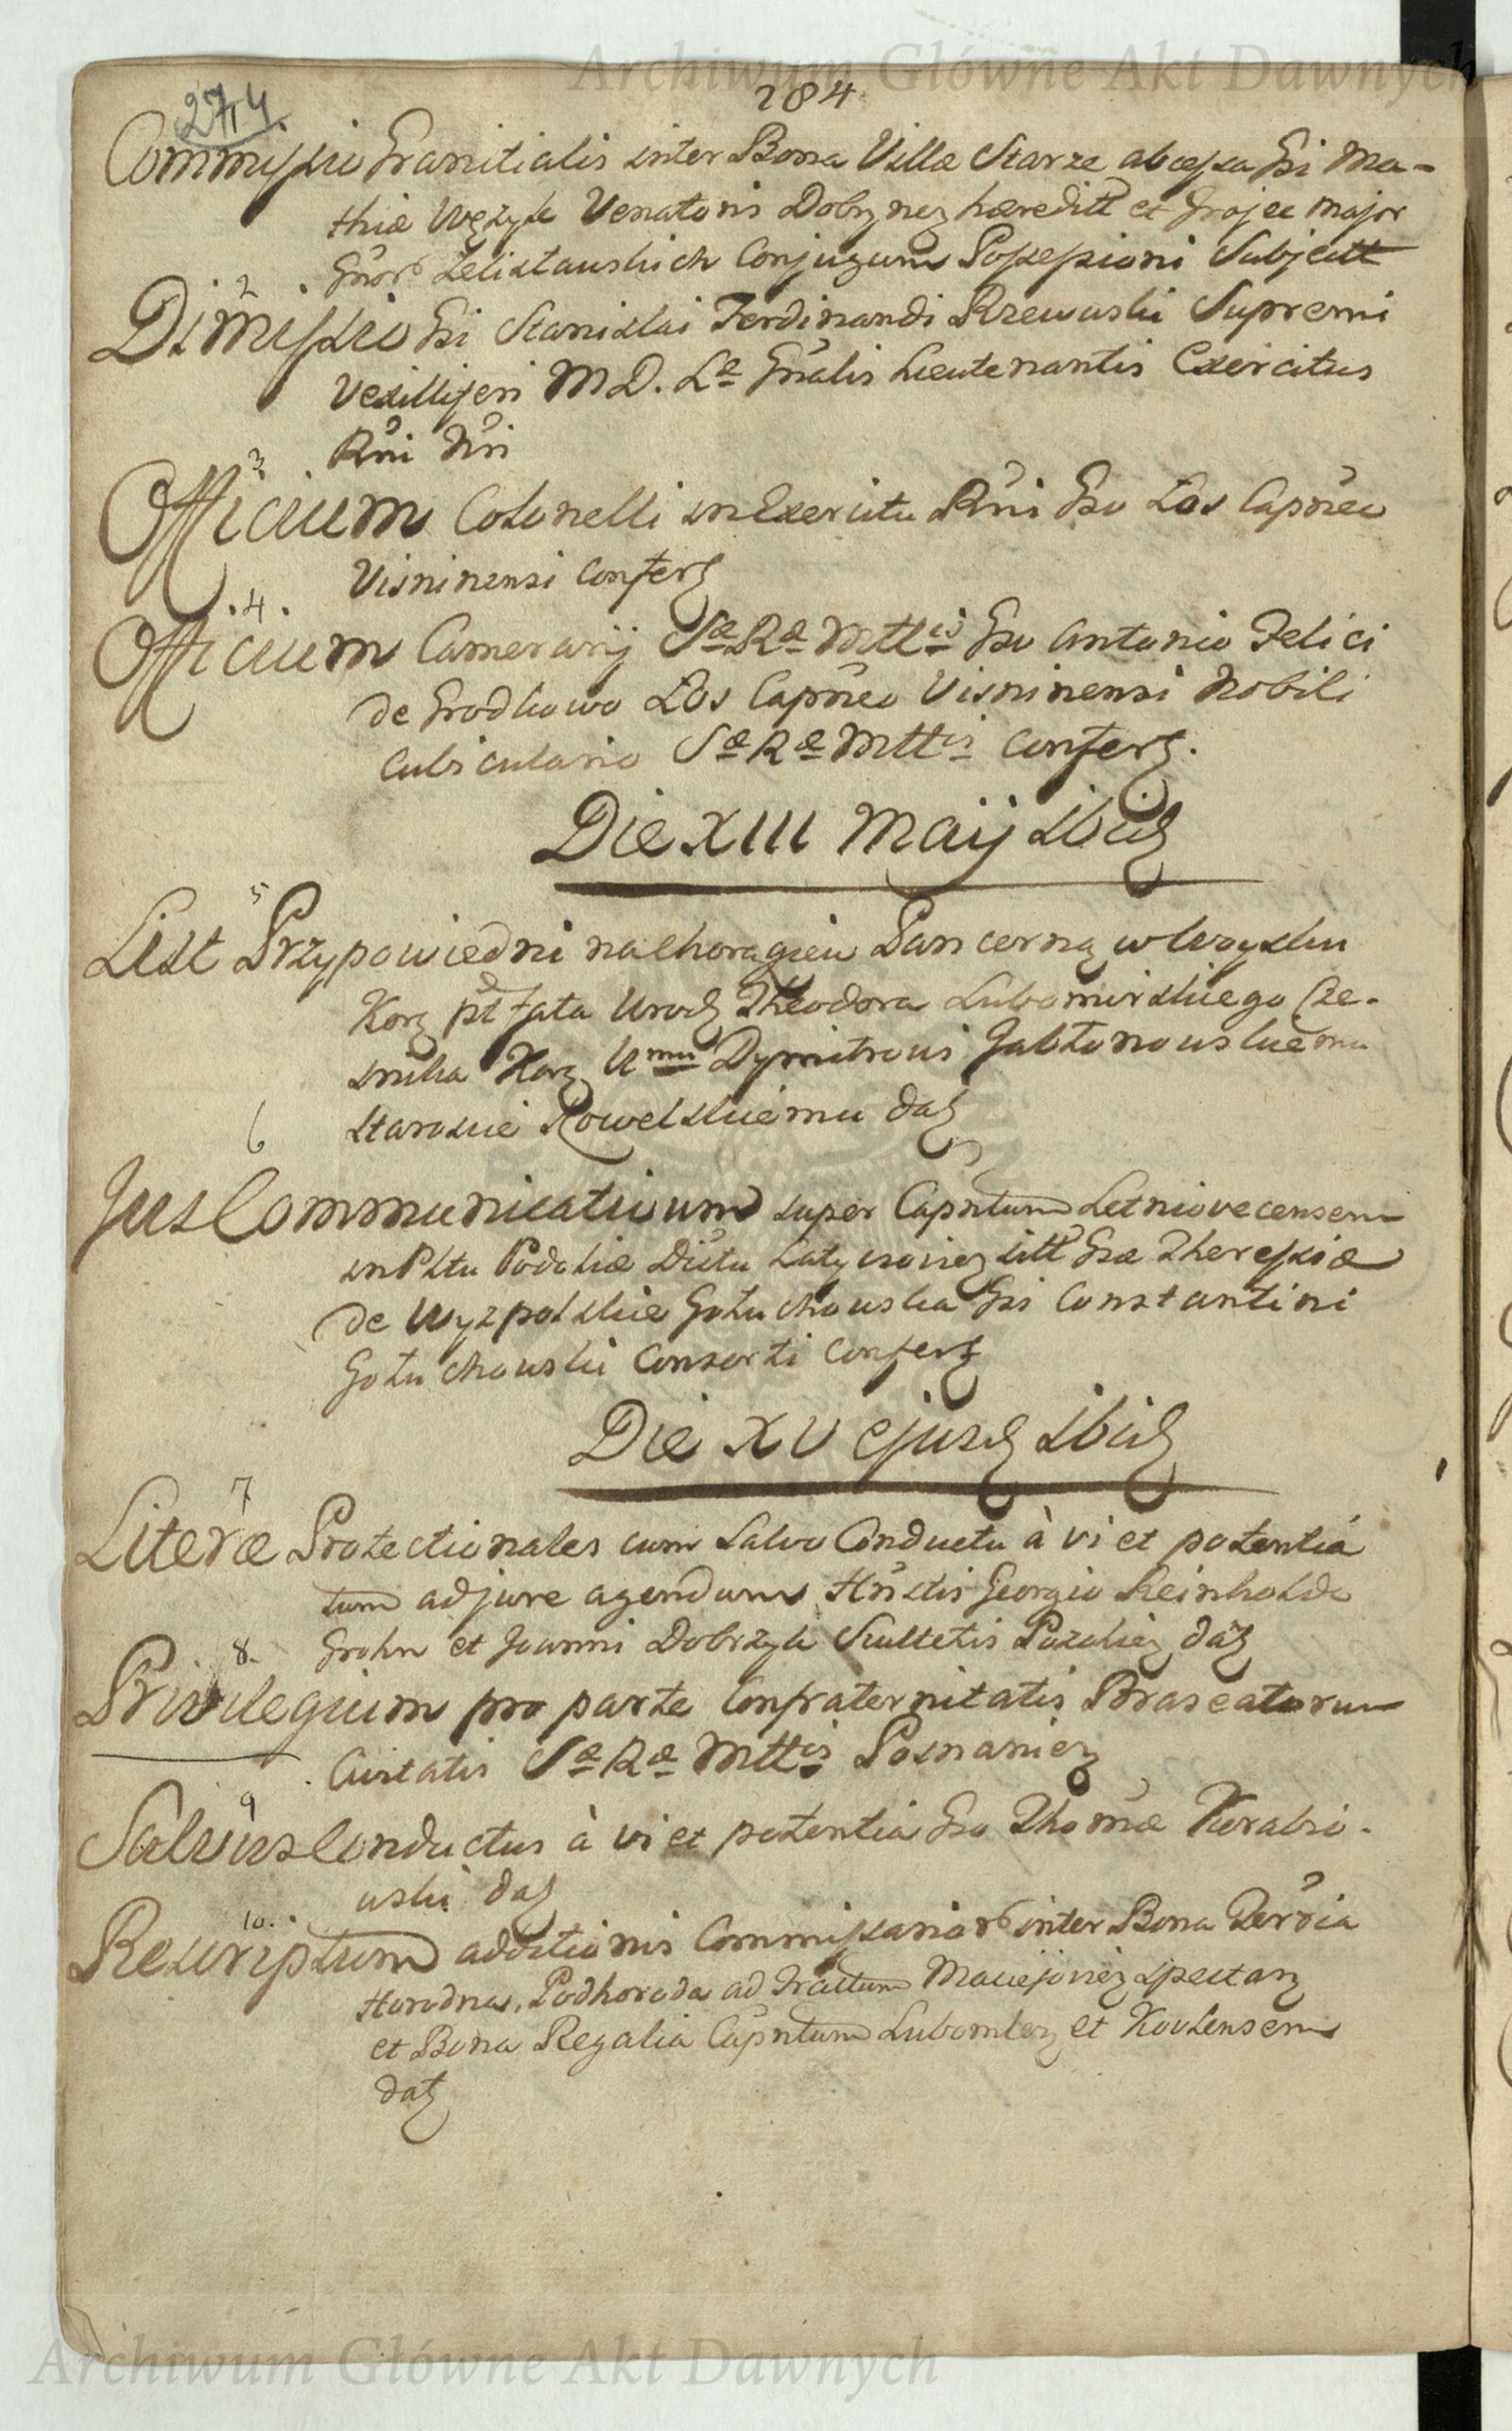 Archiwum Główne Akt Dawnych
284
274
Commissio Granitialis inter Bona Villæ Starze ab cessa Gsi Ma-
thiæ Wężyk Venatoris Dobrynez hæreditt et major
Gnor Conjugum Possessioni Subjectt
2
Dimissio Gsi Stanislai Ferdinandi Rzewuski Supremi
Vexilliferi M D. Læ Gnalis Lieutenantis Exercitus
Rni Nri
3
Officium Colonelli in Exercitu Rni Gso Los Capneo
Visninensi Conferz
.4.
Officium Camerarij Sæ Ræ Mttis Gso Antonio Felici
de Grodkowo Los Capneo Visninensi Nobili
Cubiculario Sæ Ræ Mttis Conferz.
Die XIII Maij ibidz
5
List Przypowiedni na Chorągiew Pancerną w Woysku
Korz pt fata Urodz Theodora Lubomirskiego Cze-
snika Korz Umu Dymitrowi Jabłonowskiemu
Staroscie Kowelskiemu datz
6
Jus Communicativum super Capntum Letniovecensem
in Pltu Podoliæ Dictu Latyczoviez sitt Gsæ Theressiæ
de Wyzpolskie Gołuchowska Gsi Constantini
Gołuchowski Consorti Conferz
Die XV ejusdz ibidz
7
Literæ Protectionales cum Salvo Conductu à vi et potentiâ
tum ad jure agendum Hnstis Georgio Reinholdo
Grohn et Joanni Dobrzyk Scultetis datz
8.
Privilegium pro parte Confraternitatis Braseatorum
Civitatis Sæ Ræ Mttis Posnaniez
9
Salvus Conductus à vi et potentia Gso Thomæ Korabio-
wski datz
10.
Rescriptum additionis Commissarior inter Bona Terria
Horodna, Podhoroda ad Tractum Maciejoviez Spectanz
et Bona Regalia Capntum Lubomlez et Kovlensem
datz
Archiwum Główne Akt Dawnych